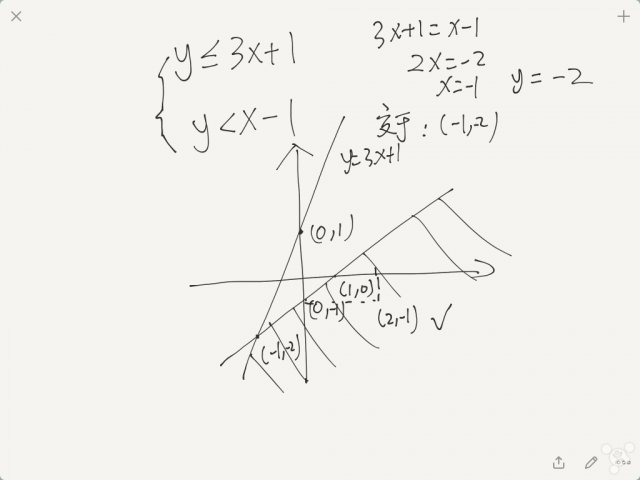 y ≤ 3x+1
y < x-1
3x+1 = x-1
2x = -2
x = -1
y = -2
交于：(-1,-2)
y=3x+1
(0,1)
(1,0)
(0,-1)
(2,-1) ✓
(-1,-2)